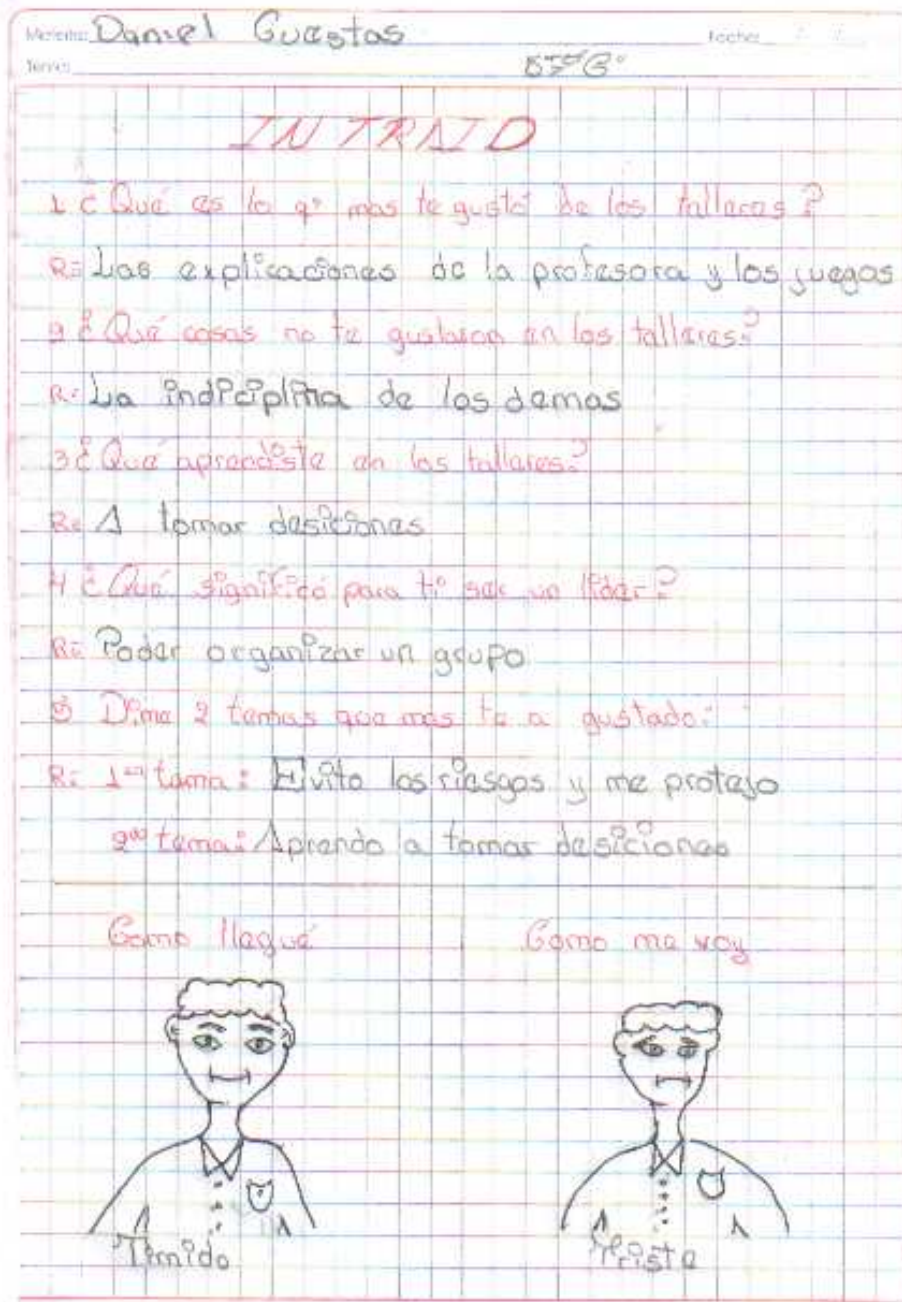 Materia: Daniel Cuestas Fecha
Tema:
INTRAID
1 ¿Qué es lo q' mas te gustó de los talleres?
R= Las explicaciones de la profesora y los juegos
2 ¿Qué cosas no te gustaron en los talleres?
R= La indiciplina de los demas
3 ¿Qué aprendiste en los talleres?
R= A tomar desiciones
4 ¿Qué significó para ti ser un lider?
R= Poder organizar un grupo
5 Dime 2 temas que mas te a gustado:
R= 1er tema: Evito los riesgos y me protejo
2do tema: Aprendo a tomar desiciones
Como llegué Como me voy
Timido Triste